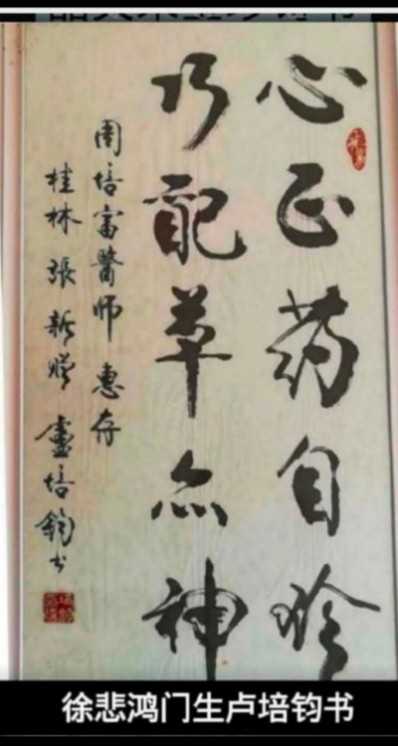 心正药自珍
巧配草亦神
周培富醫师惠存
桂林張新赠 盧培鈞书
徐悲鸿门生卢培钧书